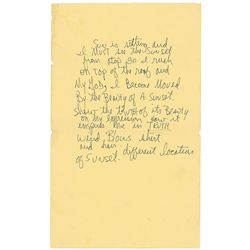 Sun is setting and
I must see the sunset
from stop so I rush
on top of the roof and
My God, I Become Moved
By the Beauty of A Sunset.
Show the truth of its Beauty
on my expression how it
inspires me in TRUTH.
Wind Blows shirt
and hair different location
of Sunset.